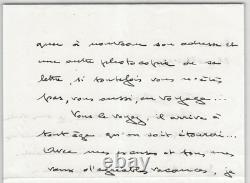 que à nouveau son adresse et
une autre photocopie de sa
lettre, si toutefois vous n'êtes
pas, vous aussi, en voyage...
Vous le voyez, il arrive à
tout âge qu'on soit étourdi...
Avec mes et tous mes
vœux d'agréables vacances, je